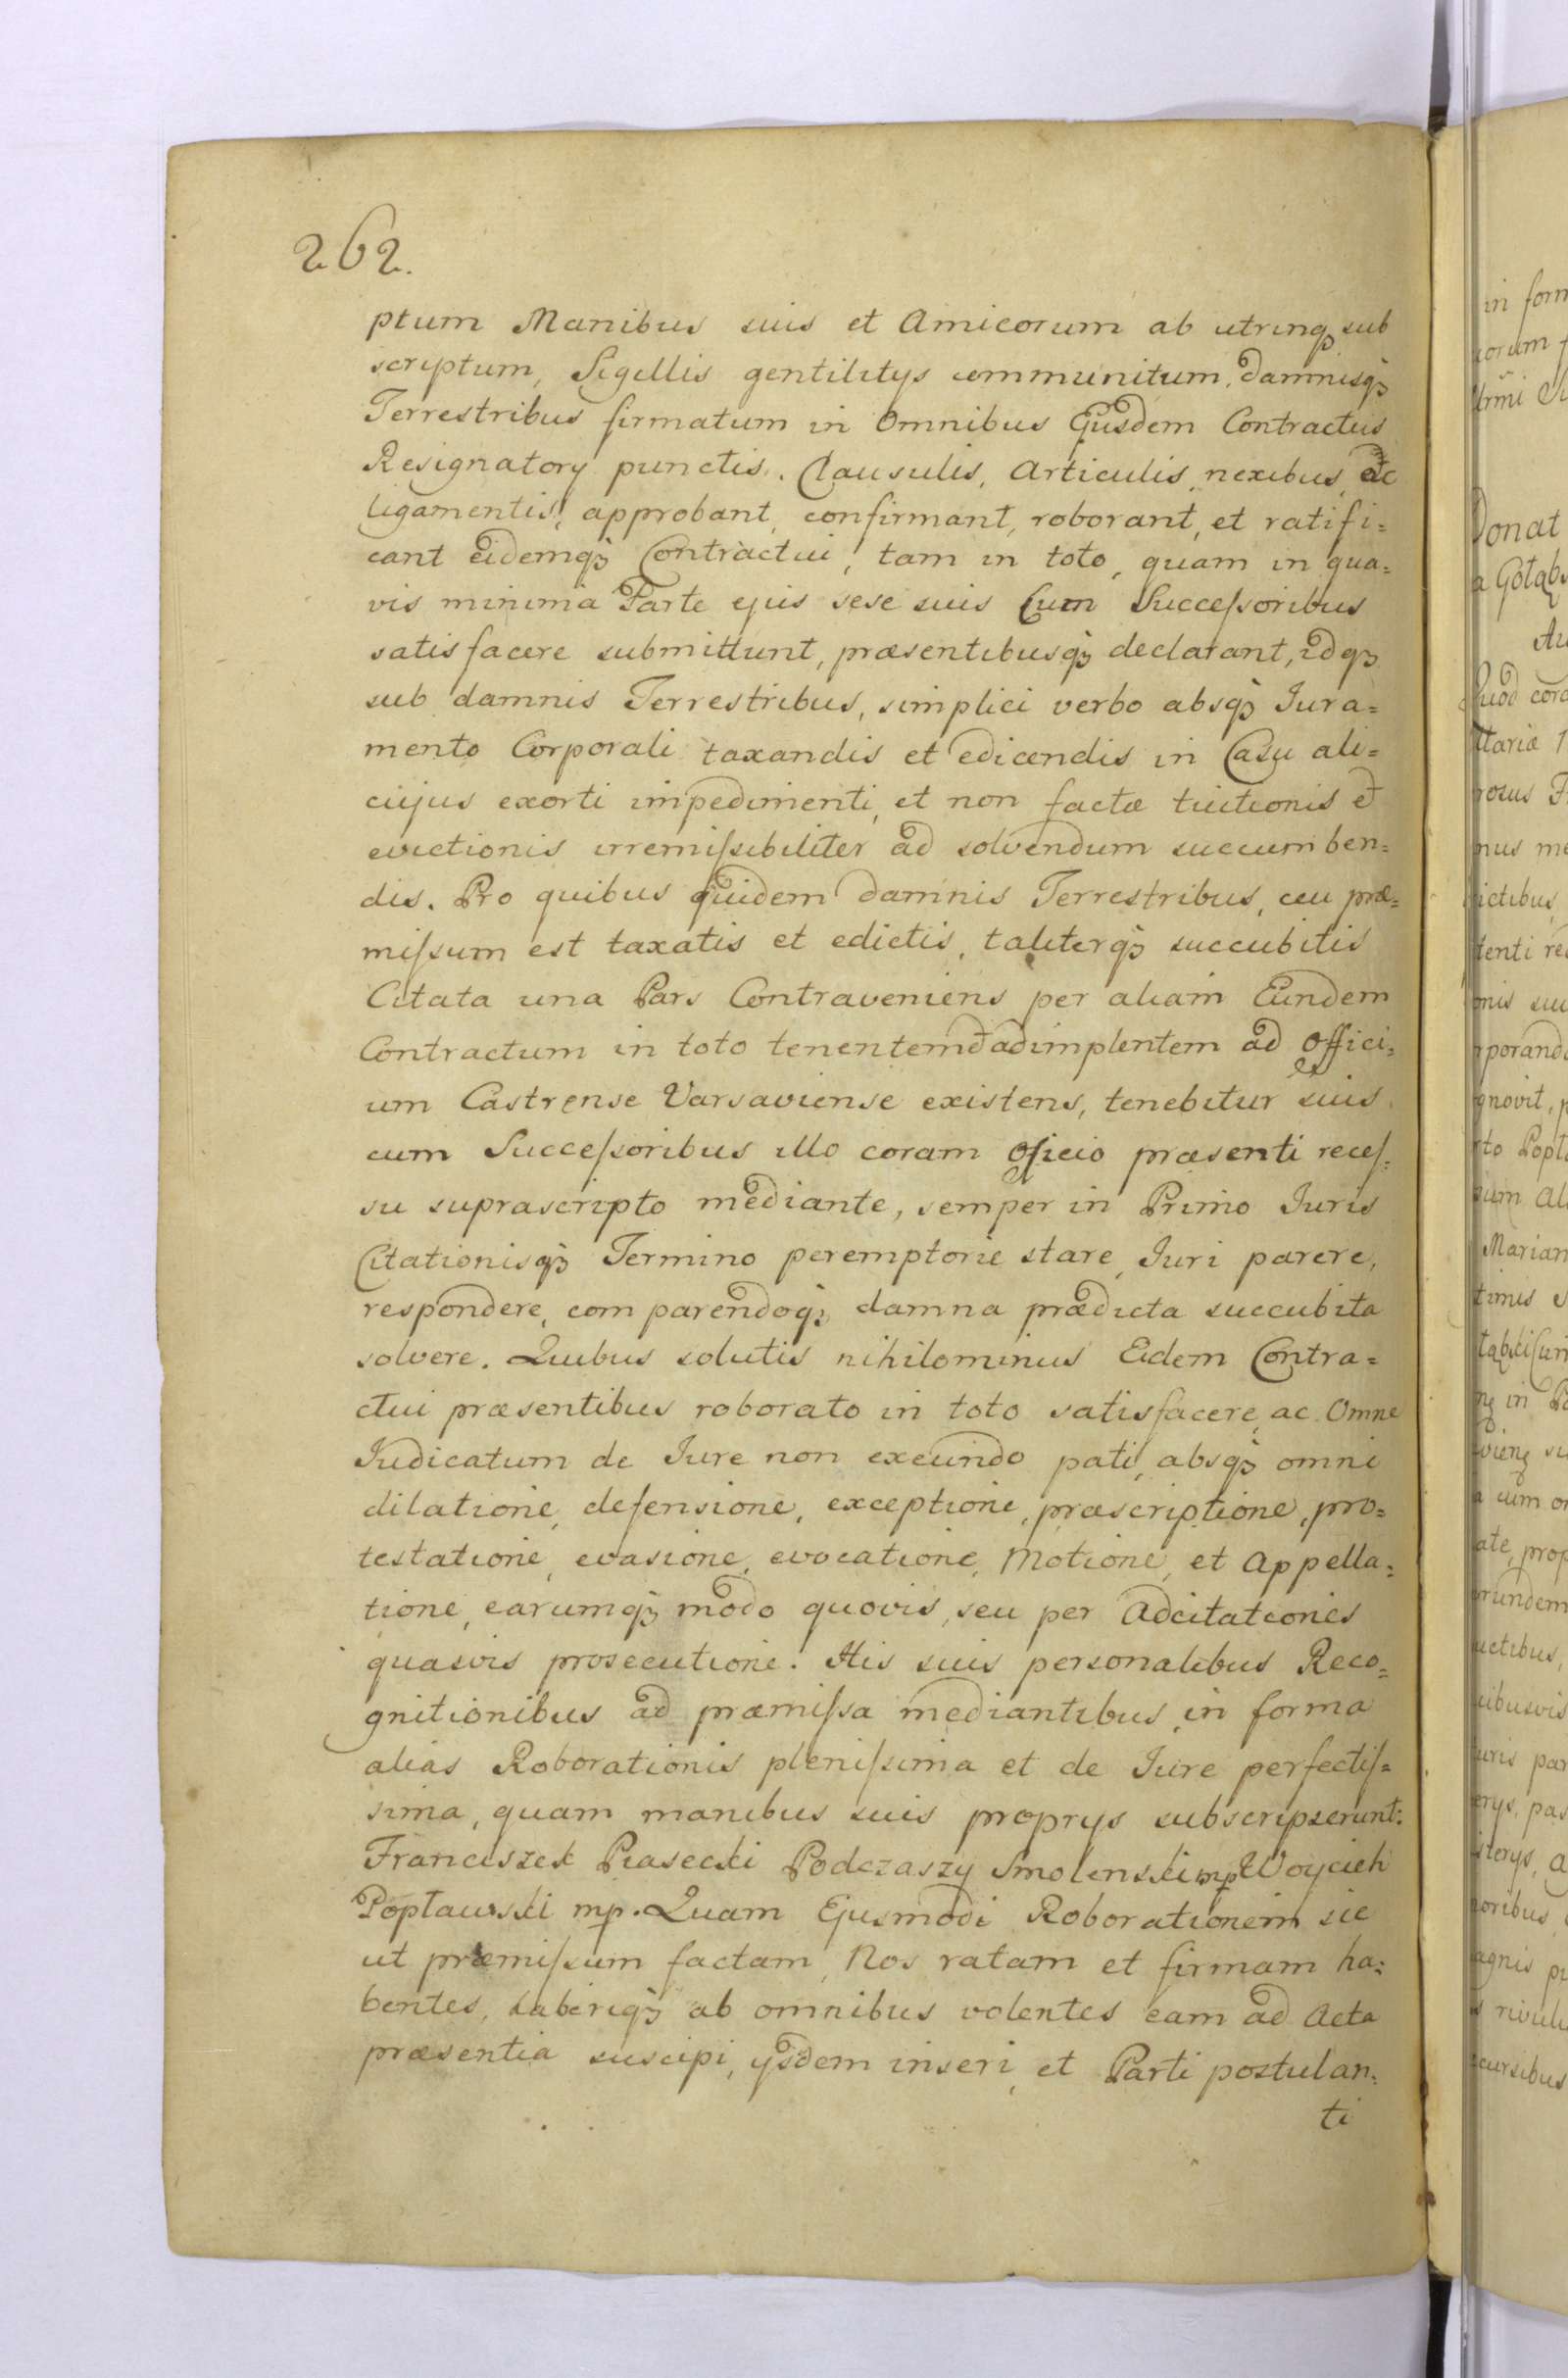 262.
ptum Manibus suis et Amicorum ab utrinq3 sub
scriptum, Sigillis gentilitys communitum, damnisq3
Terrestribus firmatum in Omnibus Ejusdem Contractus
Resignatory punctis. Clausulis, Articulis, nexibus, ac
ligamentis, approbant, confirmant, roborant, et ratifi=
cant eidemq3 Contractui, tam in toto, quam in qua=
vis minima Parte ejus sese suis Cum Successoribus
satisfacere submittunt, præsentibusq3 declarant, idq3
sub damnis Terrestribus, simplici verbo absq3 Jura=
mento Corporali taxandis et edicendis in Casu ali=
cujus exorti impedimenti, et non factæ tuitionis et
evictionis irremissibiliter ad solvendum succumben=
dis. Pro quibus quidem damnis Terrestribus, ceu præ=
missum est taxatis et edictis, taliterq3 succubitis
Citata una Pars Contraveniens per aliam Eundem
Contractum in toto tenentem et adimplentem ad Offici=
um Castrense Varsaviense existens, tenebitur et suis
cum Successoribus illo coram Officio præsenti reces=
su suprascripto mediante, semper in Primo Juris
Citationisq3 Termino peremptorie stare, Juri parere,
respondere, comparendoq3 damna prædicta succubita
solvere. Quibus solutis nihilominus Eidem Contra=
ctui præsentibus roborato in toto satisfacere, ac Omne
Judicatum de Jure non exeundo pati, absq3 omni
dilatione, defensione, exceptione, præscriptione, pro=
testatione, evasione, evocatione, Motione, et Appella=
tione, earumq3 modo quovis, seu per Adcitationes
quasvis prosecutione. His suis personalibus Reco=
gnitionibus ad præmissa mediantibus, in forma
alias Roborationis plenissima et de Jure perfectis=
sima, quam manibus suis proprys subscripserunt:
Franciszek Piasecki Podczaszy Smolenski mp Woyciech
Popławski mp. Quam Ejusmodi Roborationem sic
ut præmissum factam, Nos ratam et firmam ha=
bentes, haberiq3 ab omnibus volentes eam ad Acta
præsentia suscipi, ysdem inseri, et Parti postulan=
ti